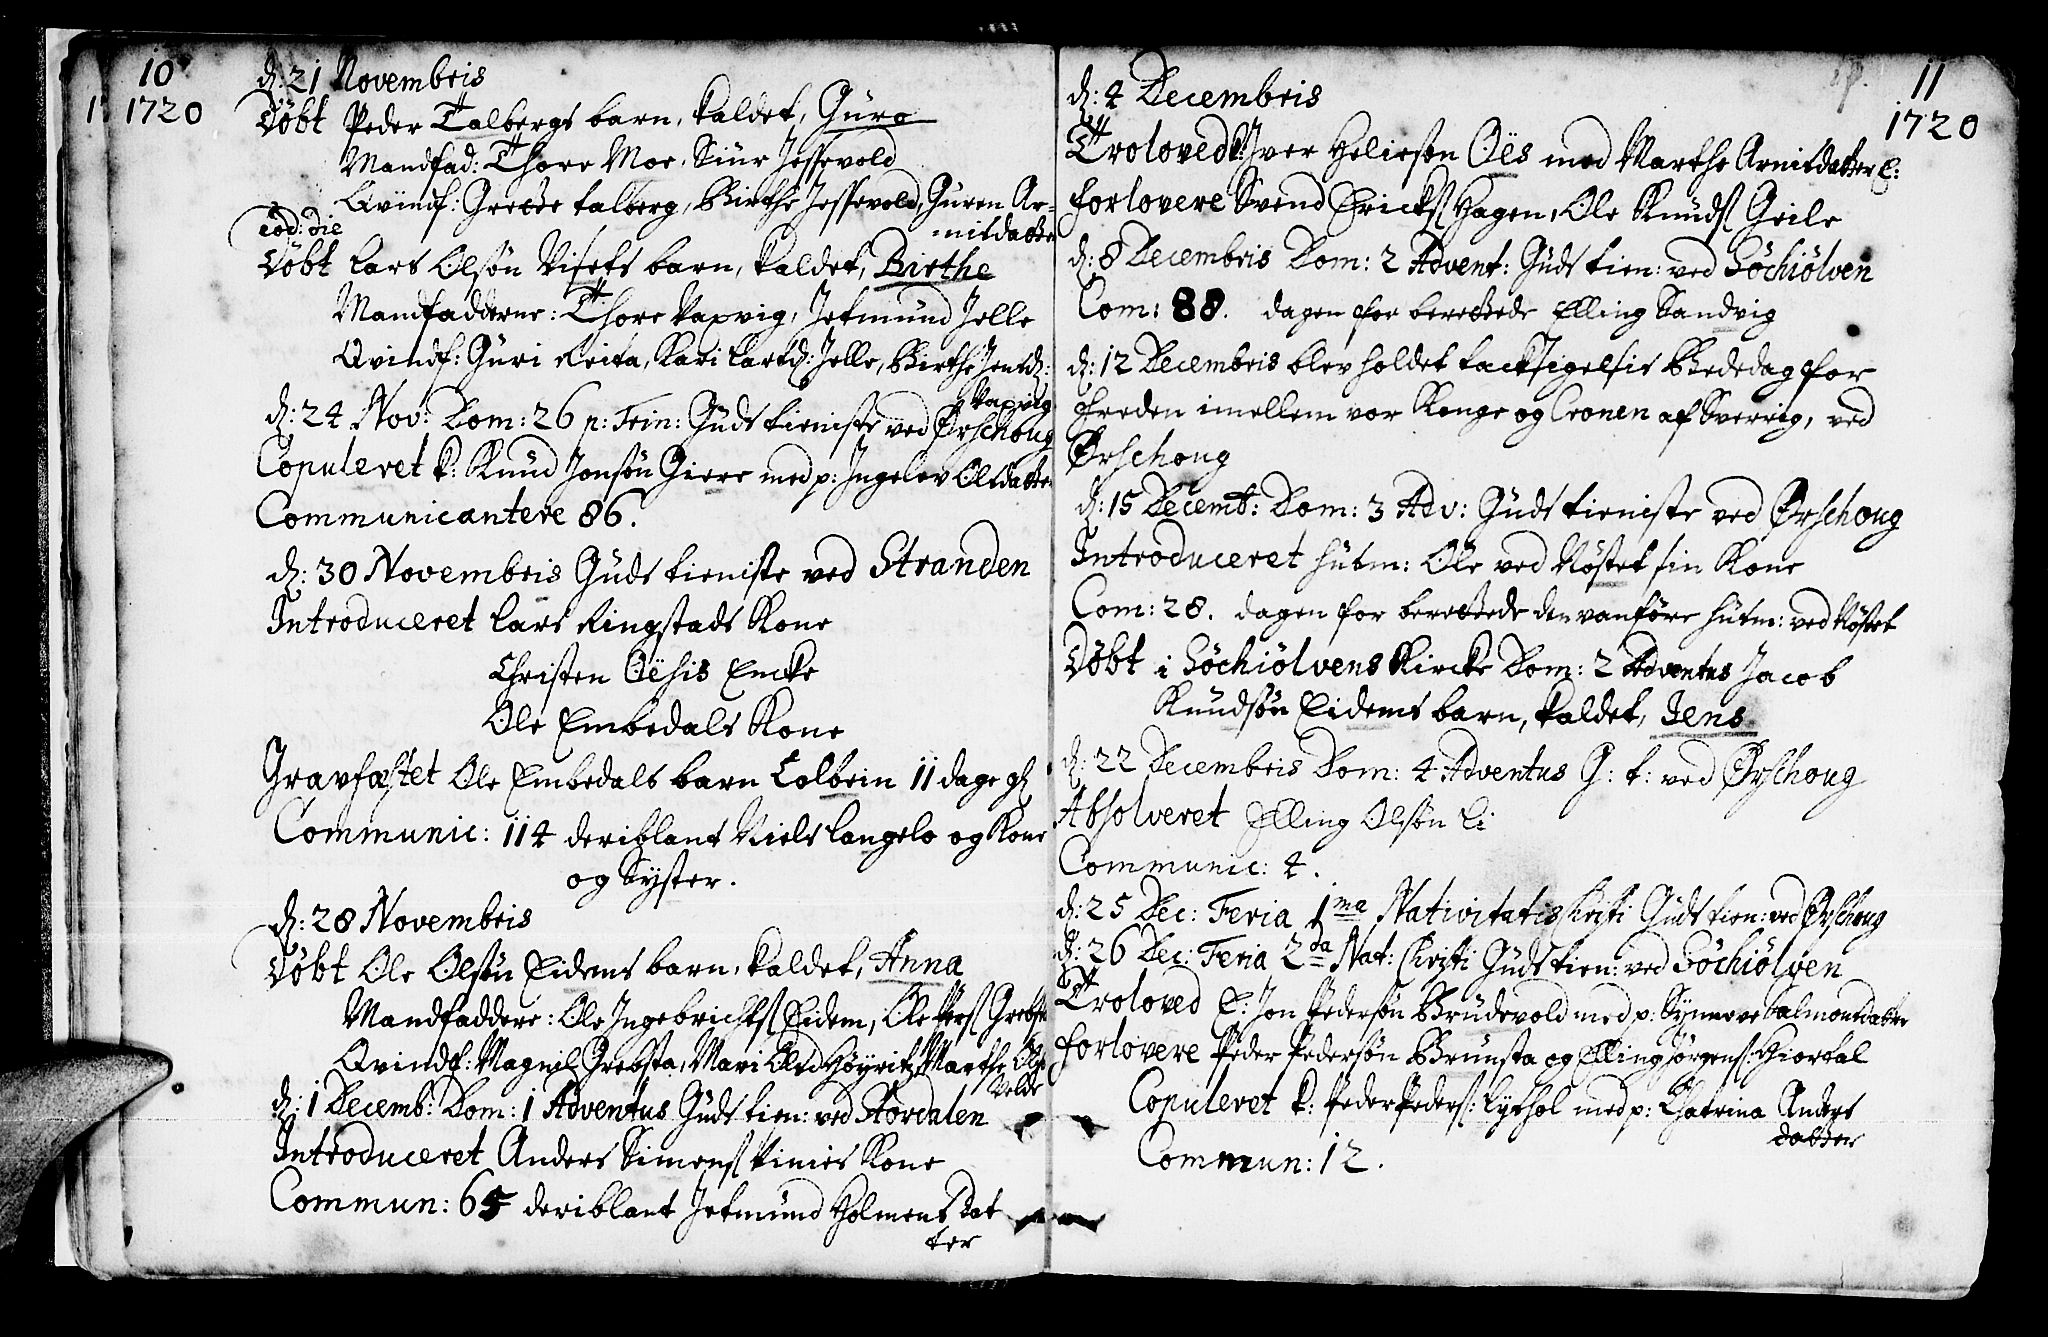 10
1720
d: 21 Novembris
Döbt Peder Talbergs barn, kaldet, Guro
Mandfad: Thore Moe, Siur Jessevold
Qvindf: Grethe talberg, Birthe Jessevold, Guren Ar-
nitsdatter
eod: die
Döbt Lars Olsön Visets barn, kaldet, Birthe
Mandfadderne: Thore Vaxvig, Jetmund Jelle
Qvindf: Guri Reita, Kari Larsd: Jelle, Birthe Jensd:
Vaxvig
d: 24 Nov: Dom: 26 p: Trin: Guds tieniste ved Ørschoug
Copuleret k: Knud Jonsön Giere med p: Ingelev Olsdatter
Communicantere 86.
d: 30 Novembris Guds tieniste ved Stranden
Introduceret Lars Ringstads Kone
Christen Oëhis Encke
Ole Embedals Kone
Gravfæstet Ole Embedals barn Colbein 11 dage gl
Communic: 114 deriblant Niels Langelo og Kone
og Syster.
d: 28 Novembris
Döbt Ole Olsön Eidems barn, kaldet, Anna
Mandfaddere: Ole Ingebrichts Eidem, Ole Pers Grebsta
Qvindf: Magnil Grebsta, Mari Olsd Höyvitz, Marthe Ols
Velde
d: 1 Decemb: Dom: 1 Adventus Guds tien: ved Stordalen
Introduceret Anders Simens Vinies Kone
Commun: 65 deriblant Jetmund Holmens Dat
ter
11
1720
d: 4 Decembris
Troloved k: Iver Heliesön Oës med Marthe Arnitsdatter E:
forlovere Svend Ericks Hagen, Ole Knuds Geile
d: 8 Decembris Dom: 2 Advent: Guds tien: ved Söchiölven
Com: 88. dagen for berettede Elling Sandvig
d: 12 Decembris blev holdet tacksigelsis Bededag for
freden imellem vor Konge og Cronen af Sverrig, ved
Ørschoug
d: 15 Decemb: Dom: 3 Adv: Guds tieniste ved Ørschoug
Introduceret husm: Ole ved Nöstet sin Kone
Com: 28. dagen for berettede den vanföre husm: ved Nöstet
Döbt i Söchiölvens Kircke Dom: 2 Adventus Jacob
Knudsön Eidems barn, kaldet, Jens
d: 22 Decembris Dom: 4 Adventus G: t: ved Ørschoug
Absolveret Elling Olsön Li
Communic: 4.
d: 25 Dec: Feria 1ma Nativitatis Christi Guds tien: ved Ørschoug
d: 26 Dec: Feria 2da Nat: Christi Guds tien: ved Söchiölven
Troloved E: Jon Pedersön Brudevold med p: Synneve Salmonsdatter
forlovere Peder Pedersön Brunsta og Elling Jörgens: Giortal
Copuleret k: Peder Peders: Lyshol med p: Chatrina Anders
datter
Commun: 12.